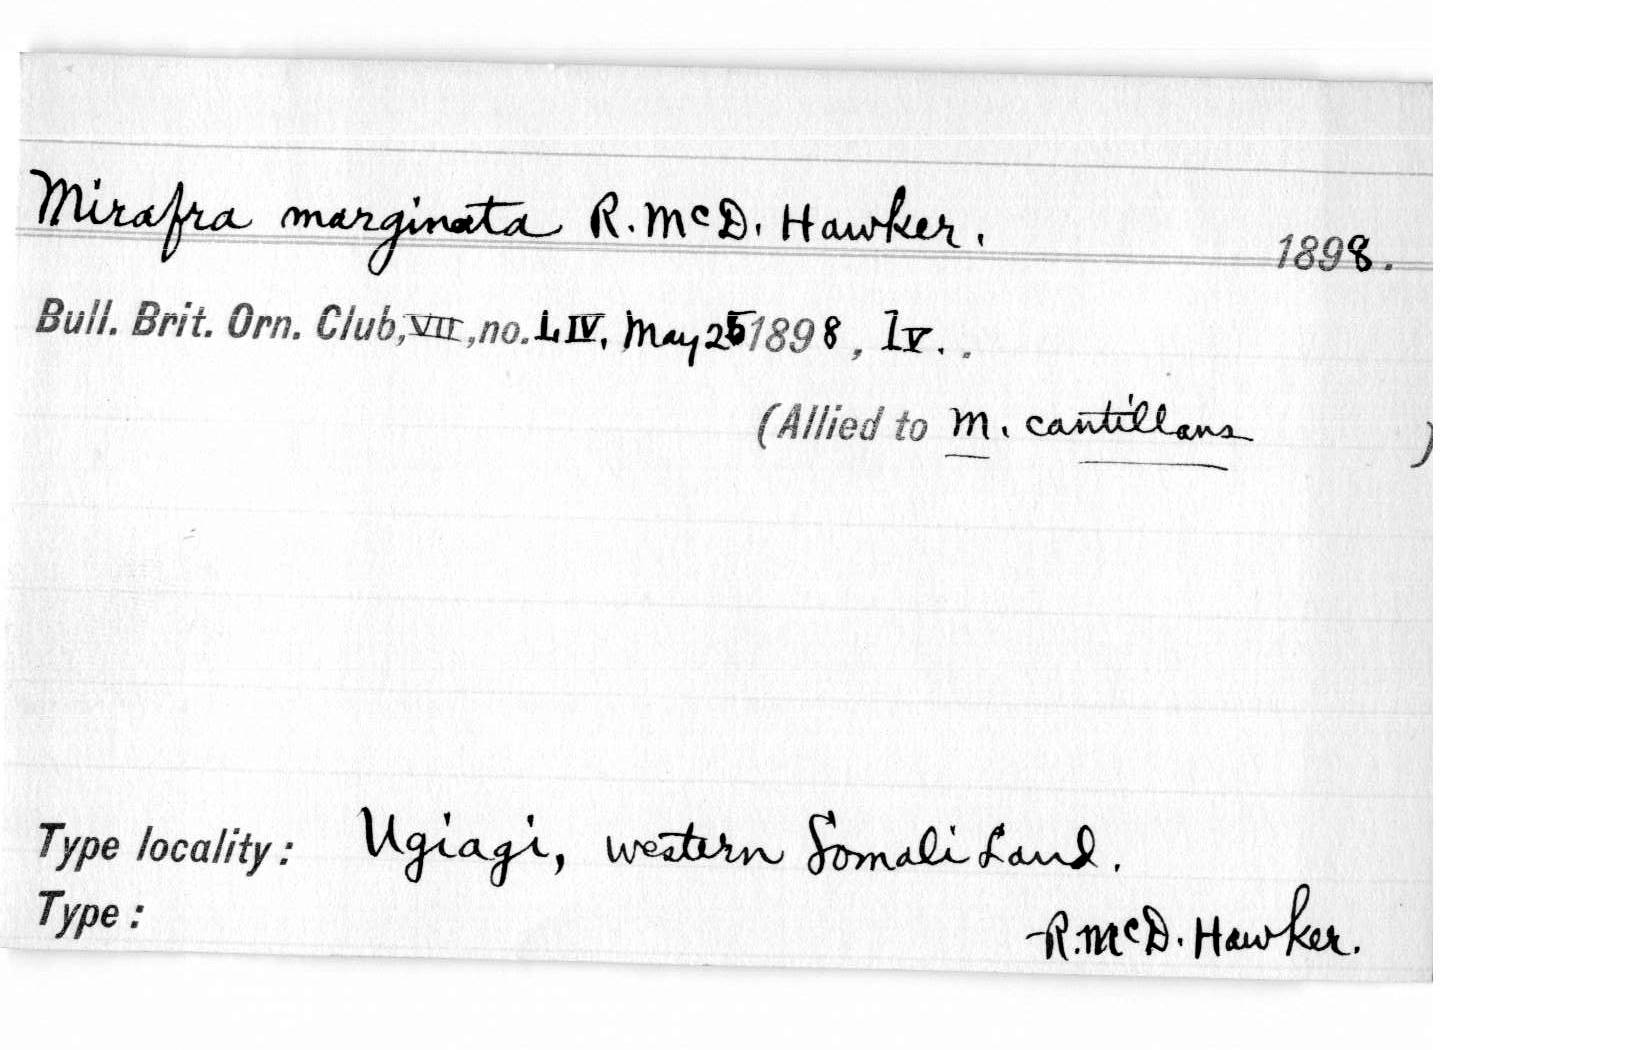 Mirafra marginata R. McD. Hawker.
1898.
Bull. Brit. Orn. Club, VII, no. LIV, May 25 1898, lv. .
(Allied to M. cantillans )
Type locality: Ugiagi, western Somali Land.
Type:
R. McD. Hawker.